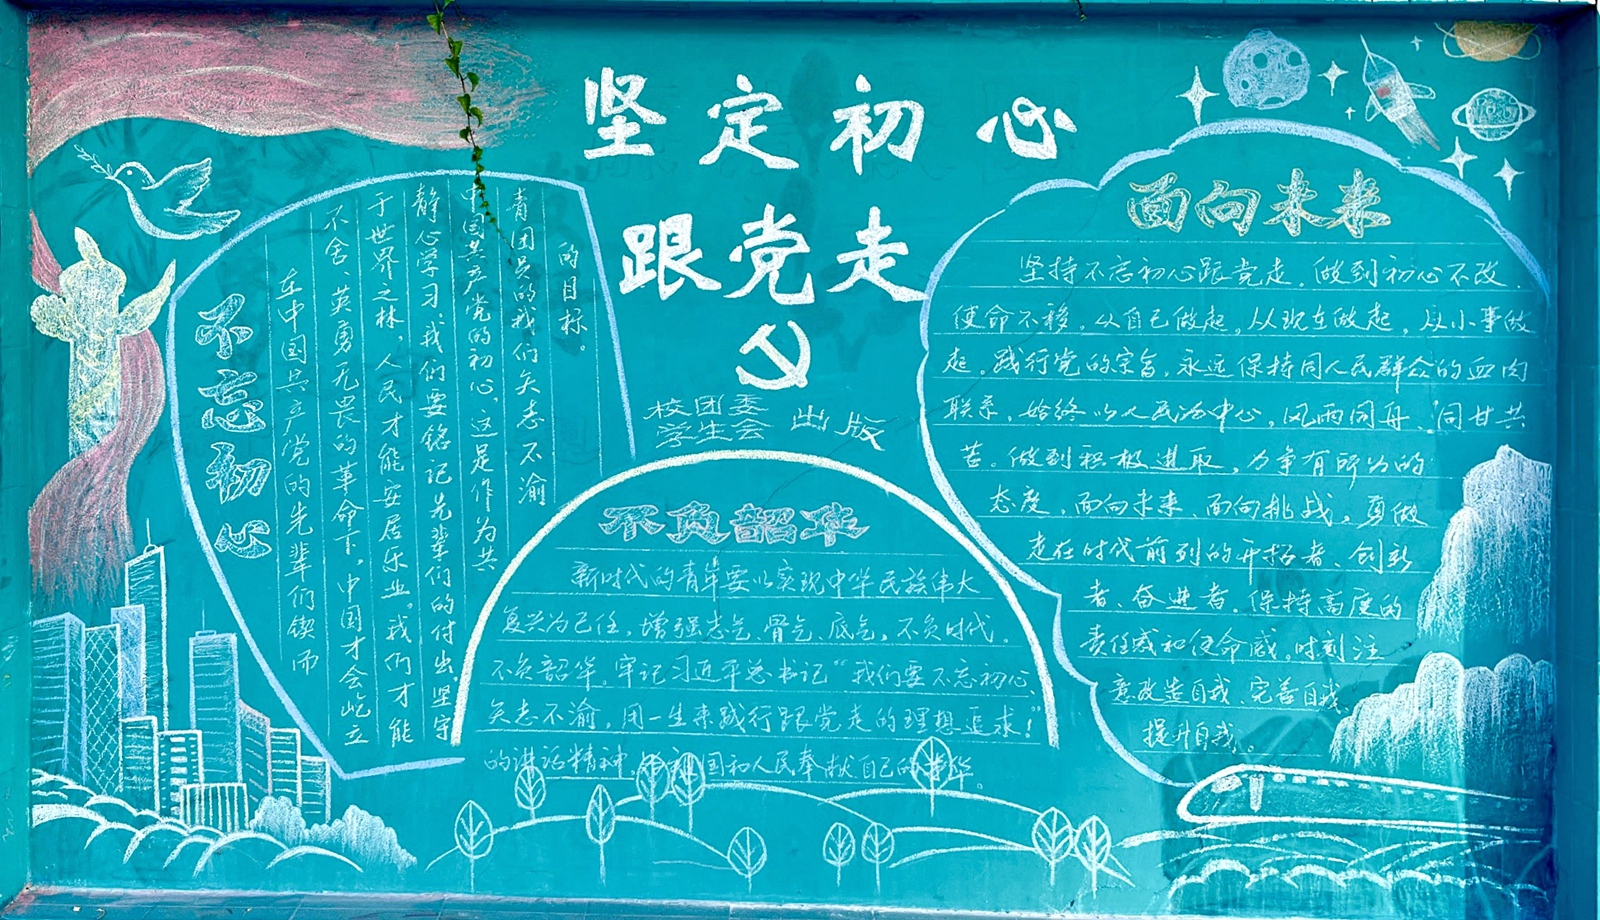 坚定初心
跟党走
校团委
学生会
出版
不忘初心
在中国共产党的先辈们锲而
不舍、英勇无畏的革命下,中国才会屹立
于世界之林,人民才能安居乐业。我们才能
静心学习。我们要铭记先辈们的付出,坚守
中国共产党的初心,这是作为共
青团员的我们矢志不渝
的目标。
不负韶华
新时代的青年要以实现中华民族伟大
复兴为己任,增强志气、骨气、底气,不负时代,
不负韶华,牢记习近平总书记“我们要不忘初心、
矢志不渝,用一生来践行跟党走的理想追求!”
的讲话精神,给祖国和人民奉献自己的年华。
面向未来
坚持不忘初心跟党走,做到初心不改,
使命不移,从自己做起,从现在做起,从小事做
起。践行党的宗旨,永远保持同人民群众的血肉
联系,始终以人民为中心,风雨同舟、同甘共
苦。做到积极进取,力争有所为的
态度,面向未来、面向挑战,勇做
走在时代前列的开拓者、创新
者、奋进者。保持高度的
责任感和使命感,时刻注
意改造自我、完善自我、
提升自我。